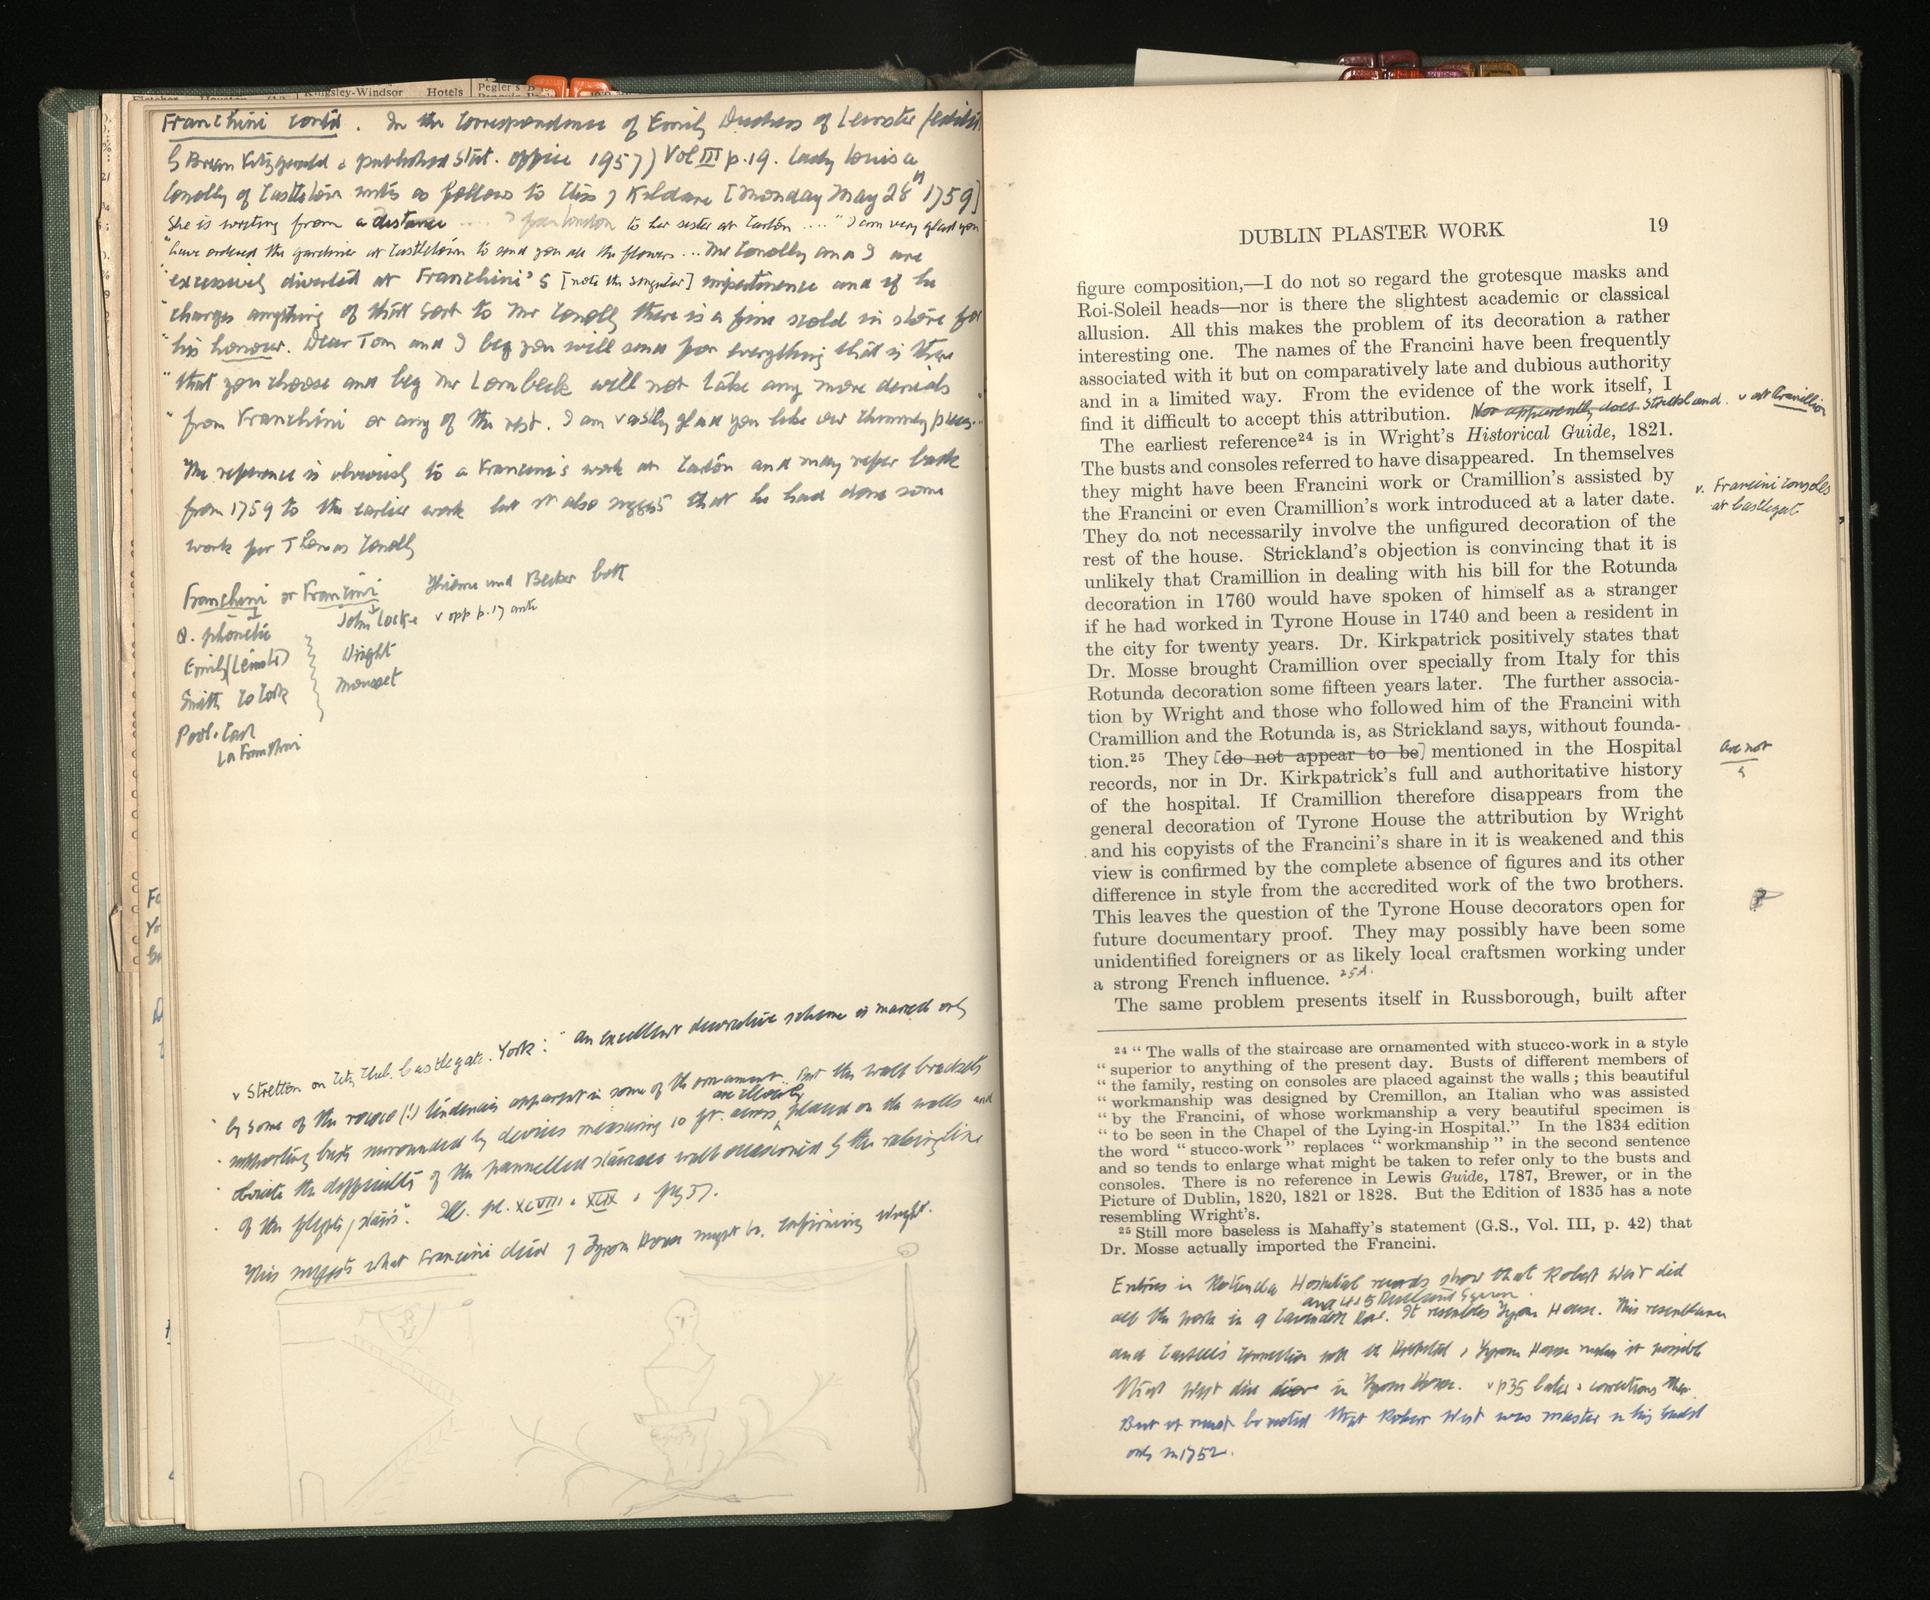 Kingsley-Windsor Hotels
Franchini contd. In the Correspondence of Emily Duchess of Leinster (edited
by Brian Fitzgerald & published Stat. office 1957) Vol III p.19. Lady Louisa
Conolly of Castletown writes as follows to Css of Kildare [Monday May 28th 1759]
She is writing from a distance .... from London to her sister at Carton .... "I am very glad you
"have ordered the gardiner at Castletown to send you all the flowers ... Mr Conolly and I are
"excessively diverted at Franchini's [note the singular] impertinence and if he
"charges anything of that sort to Mr Conolly there is a fine scold in store for
"his honour. Dear Tom and I beg you will send for everything that is there
"that you choose and beg Mr Lernbeck will not take any more denials
"from Franchini or any of the rest. I am vastly glad you like our chimney pieces."
The reference is obviously to a Francini's work at Carton and may refer back
from 1759 to the earlier work but it also suggests that he had done some
work for Thomas Conolly
Franchini or Francini Thieme und Becker both
Q. phonetic John Locke v opp p.17 ante
Emily (Leinster) Wright
Smith Co Cork
Pool & Cash
La Franchini
v Stretton on City Club. Castlegate. York: "An excellent decorative scheme is marred only
"by some of the rococo (!) tendencies apparent in some of the ornament.. But the wall brackets
"supporting busts surrounded by devices measuring 10 ft. across are illocally placed on the walls and
"obviate the difficulty of the pannelled staircase wall occasioned by the raking line
"of the flights / stairs". Ill. pl. XCVIII & XCIX & fig 37.
This suggests what Francini decor of Tyrone House might be, confirming Wright.
DUBLIN PLASTER WORK 19
figure composition,—I do not so regard the grotesque masks and
Roi-Soleil heads—nor is there the slightest academic or classical
allusion. All this makes the problem of its decoration a rather
interesting one. The names of the Francini have been frequently
associated with it but on comparatively late and dubious authority
and in a limited way. From the evidence of the work itself, I
find it difficult to accept this attribution. Nor apparently does Strickland. v art Cramillion
The earliest reference²⁴ is in Wright's Historical Guide, 1821.
The busts and consoles referred to have disappeared. In themselves
they might have been Francini work or Cramillion's assisted by
v. Francini consoles
at Castlegate
the Francini or even Cramillion's work introduced at a later date.
They do not necessarily involve the unfigured decoration of the
rest of the house. Strickland's objection is convincing that it is
unlikely that Cramillion in dealing with his bill for the Rotunda
decoration in 1760 would have spoken of himself as a stranger
if he had worked in Tyrone House in 1740 and been a resident in
the city for twenty years. Dr. Kirkpatrick positively states that
Dr. Mosse brought Cramillion over specially from Italy for this
Rotunda decoration some fifteen years later. The further associa-
tion by Wright and those who followed him of the Francini with
Cramillion and the Rotunda is, as Strickland says, without founda-
tion.²⁵ They [do not appear to be] mentioned in the Hospital
are not
records, nor in Dr. Kirkpatrick's full and authoritative history
of the hospital. If Cramillion therefore disappears from the
general decoration of Tyrone House the attribution by Wright
and his copyists of the Francini's share in it is weakened and this
view is confirmed by the complete absence of figures and its other
difference in style from the accredited work of the two brothers.
This leaves the question of the Tyrone House decorators open for
future documentary proof. They may possibly have been some
unidentified foreigners or as likely local craftsmen working under
a strong French influence. 25A.
The same problem presents itself in Russborough, built after
²⁴ "The walls of the staircase are ornamented with stucco-work in a style
"superior to anything of the present day. Busts of different members of
"the family, resting on consoles are placed against the walls; this beautiful
"workmanship was designed by Cremillon, an Italian who was assisted
"by the Francini, of whose workmanship a very beautiful specimen is
"to be seen in the Chapel of the Lying-in Hospital." In the 1834 edition
the word "stucco-work" replaces "workmanship" in the second sentence
and so tends to enlarge what might be taken to refer only to the busts and
consoles. There is no reference in Lewis Guide, 1787, Brewer, or in the
Picture of Dublin, 1820, 1821 or 1828. But the Edition of 1835 has a note
resembling Wright's.
²⁵ Still more baseless is Mahaffy's statement (G.S., Vol. III, p. 42) that
Dr. Mosse actually imported the Francini.
Entries in Rotunda Hospital records show that Robert West did
and 4 & 5 Rutland Square.
all the work in 9 Cavendish Row. It resembles Tyrone House. This resemblance
and Castle's connection with the Hospital & Tyrone House makes it possible
that West did decor in Tyrone House. v p35 later & corrections there.
But it must be noted that Robert West was master in his Guild
only in 1752.